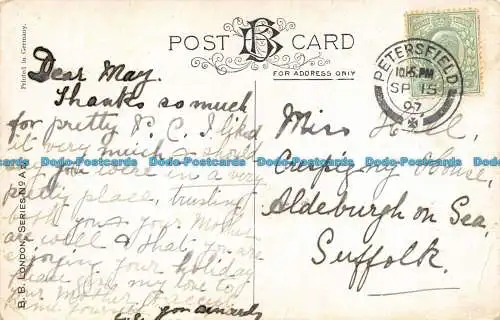 POST CARD
FOR ADDRESS ONLY
Printed in Germany.
B. B. LONDON, SERIES No A
PETERSFIELD
10.15 PM
SP 15
07
Dear May.
Thanks so much
for pretty P.C. I like
it very much & should
say you were in a very
pretty place, trusting
both you & your Mother
are well & that you are
enjoying your holiday
please give my love to
your mother & accept
same yourself
yours sincerely
Miss Hill,
House,
Aldeburgh on Sea,
Suffolk.
Dodo-Postcards Dodo-Postcards Dodo-Postcards Dodo-Postcards Dodo-Postcards